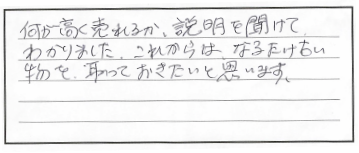 何が高く売れるか、説明を聞けて
わかりました。これからは、なるだけ古い
物を、取っておきたいと思います。